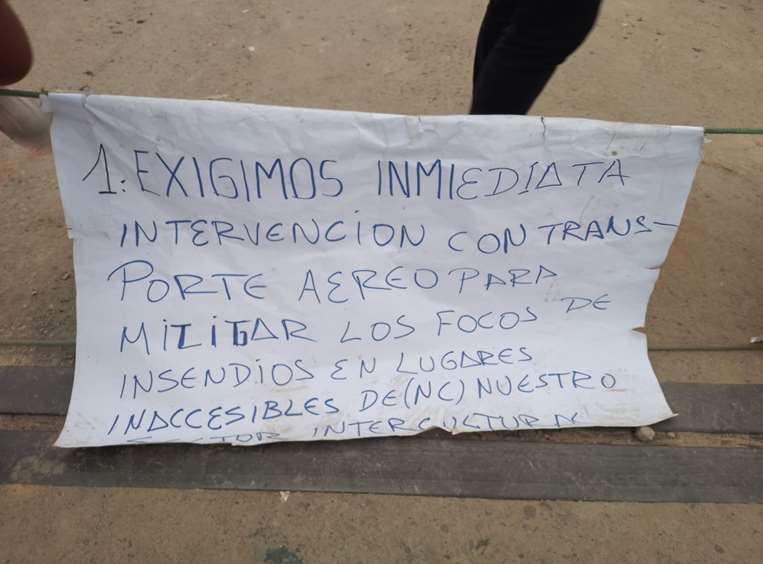 1. EXIGIMOS INMIEDIATA
INTERVENCION CON TRANS-
PORTE AEREO PARA
MITIGAR LOS FOCOS DE
INSENDIOS EN LUGARES
INACCESIBLES DE(NC) NUESTRO
SECTOR INTERCULTURAL